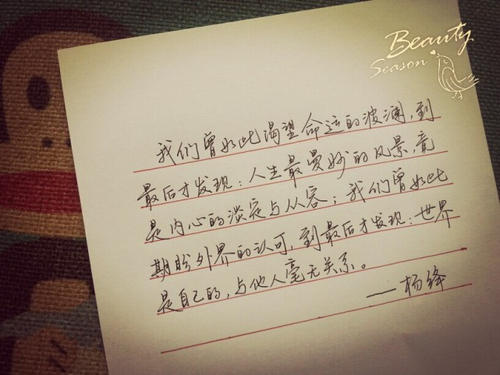 Beauty
Season
我们曾如此渴望命运的波澜，到
最后才发现：人生最曼妙的风景竟
是内心的淡定与从容；我们曾如此
期盼外界的认可，到最后才发现：世界
是自己的，与他人毫无关系。
——杨绛